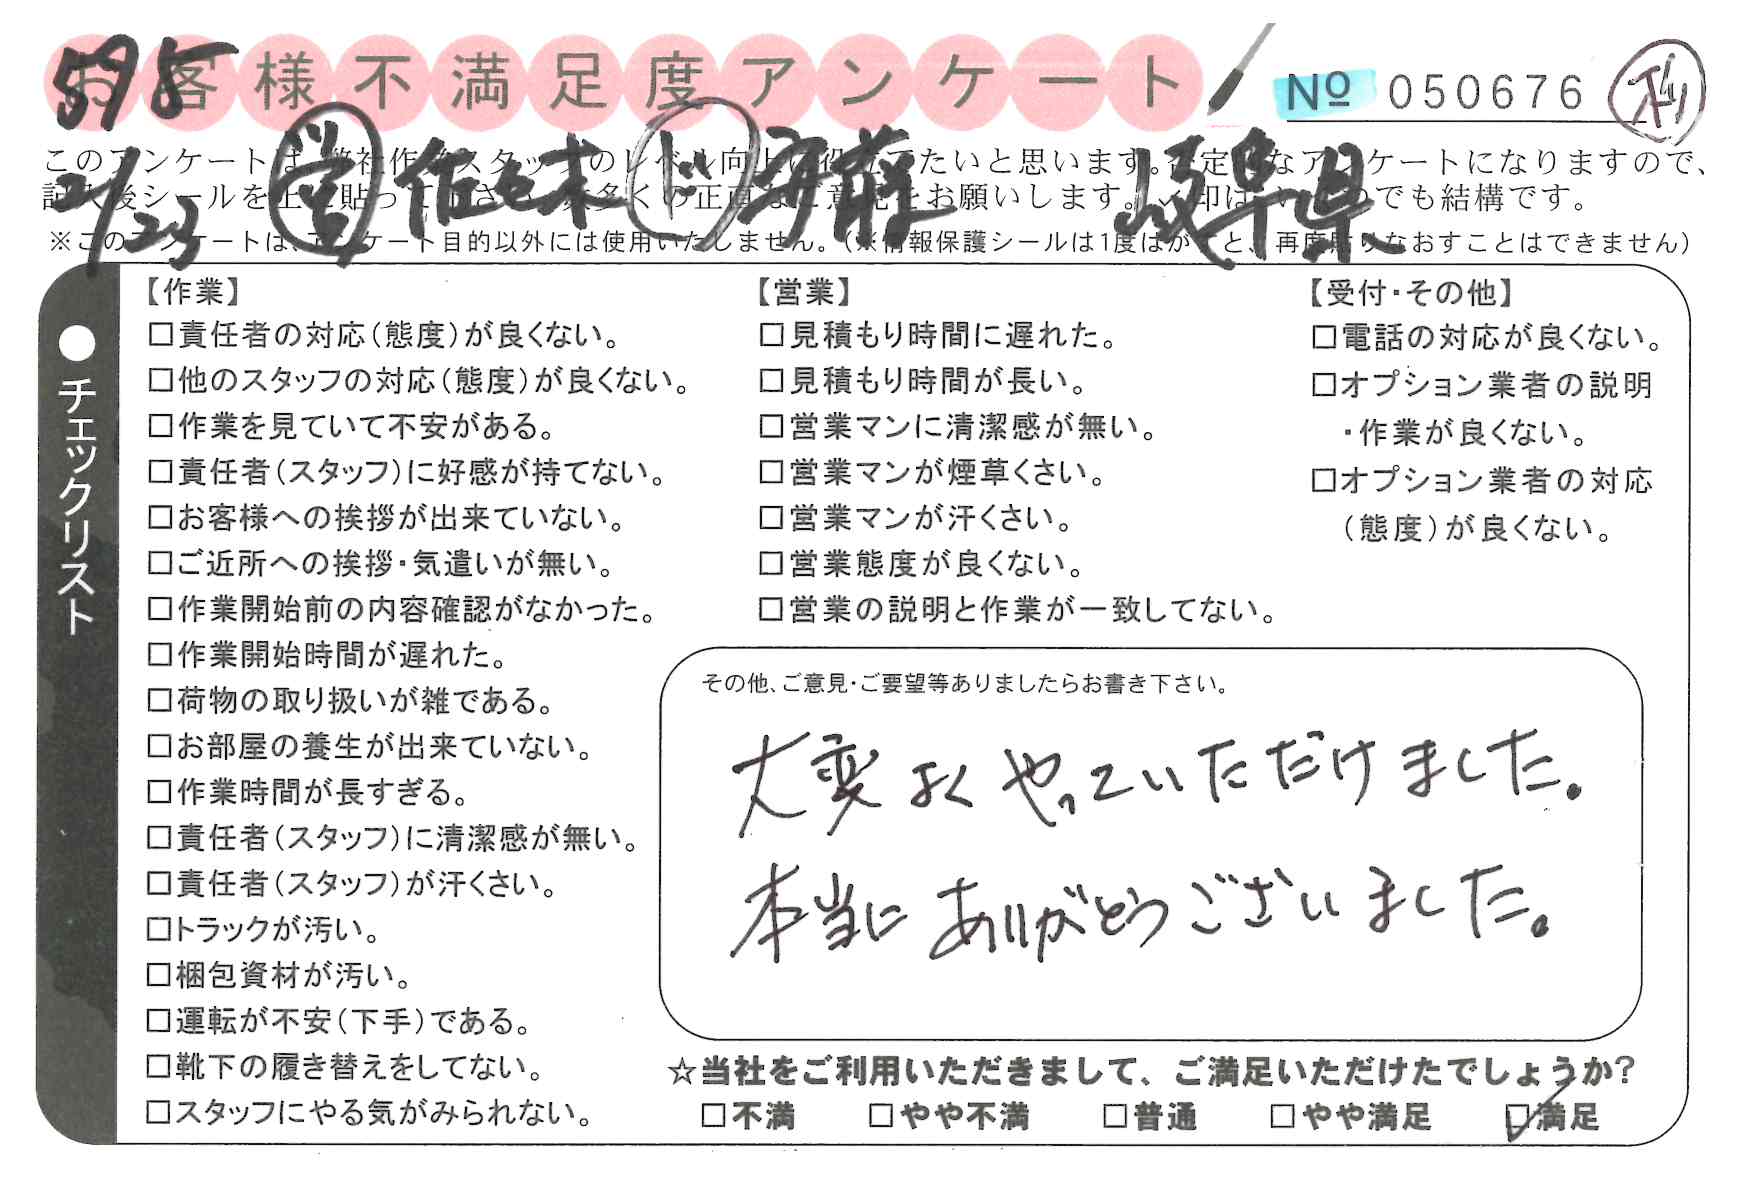 お客様不満足度アンケート
№ 050676
598
2/23 営 佐々木 ド 斉藤 岐阜県
このアンケートは、弊社作業スタッフのレベル向上に役立てたいと思います。否定的なアンケートになりますので、
記入後シールを上に貼って下さい。数多くの正直なご意見をお願いします。✓印はいくつでも結構です。
※このアンケートは、アンケート目的以外には使用いたしません。(※情報保護シールは1度はがすと、再度貼りなおすことはできません)
●チェックリスト
【作業】
□責任者の対応(態度)が良くない。
□他のスタッフの対応(態度)が良くない。
□作業を見ていて不安がある。
□責任者(スタッフ)に好感が持てない。
□お客様への挨拶が出来ていない。
□ご近所への挨拶・気遣いが無い。
□作業開始前の内容確認がなかった。
□作業開始時間が遅れた。
□荷物の取り扱いが雑である。
□お部屋の養生が出来ていない。
□作業時間が長すぎる。
□責任者(スタッフ)に清潔感が無い。
□責任者(スタッフ)が汗くさい。
□トラックが汚い。
□梱包資材が汚い。
□運転が不安(下手)である。
□靴下の履き替えをしてない。
□スタッフにやる気がみられない。
【営業】
□見積もり時間に遅れた。
□見積もり時間が長い。
□営業マンに清潔感が無い。
□営業マンが煙草くさい。
□営業マンが汗くさい。
□営業態度が良くない。
□営業の説明と作業が一致してない。
【受付・その他】
□電話の対応が良くない。
□オプション業者の説明
・作業が良くない。
□オプション業者の対応
(態度)が良くない。
その他、ご意見・ご要望等ありましたらお書き下さい。
大変よくやっていただけました。
本当にありがとうございました。
☆当社をご利用いただきまして、ご満足いただけたでしょうか?
□不満 □やや不満 □普通 □やや満足 ☑満足